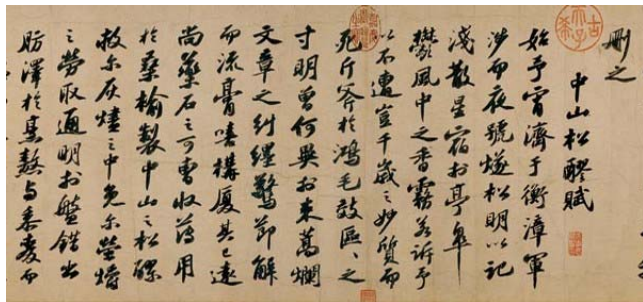 刪之
中山松醪賦
始予宵濟于衡漳軍
涉而夜號燧松明以記
淺散星宿於亭皋
鬱風中之香霧若訴予
以不遭豈千歲之妙質而
死斤斧於鴻毛效區〻之
寸明曾何異於束蒿爛
文章之糾纆驚節解
而流膏嘻構廈其已遠
尚藥石之可曹收薄用
於桑榆製中山之松醪
救尔灰燼之中免尔螢爝
之勞取通明於盤錯出
肪澤於烹熬與黍麥而
古希天子